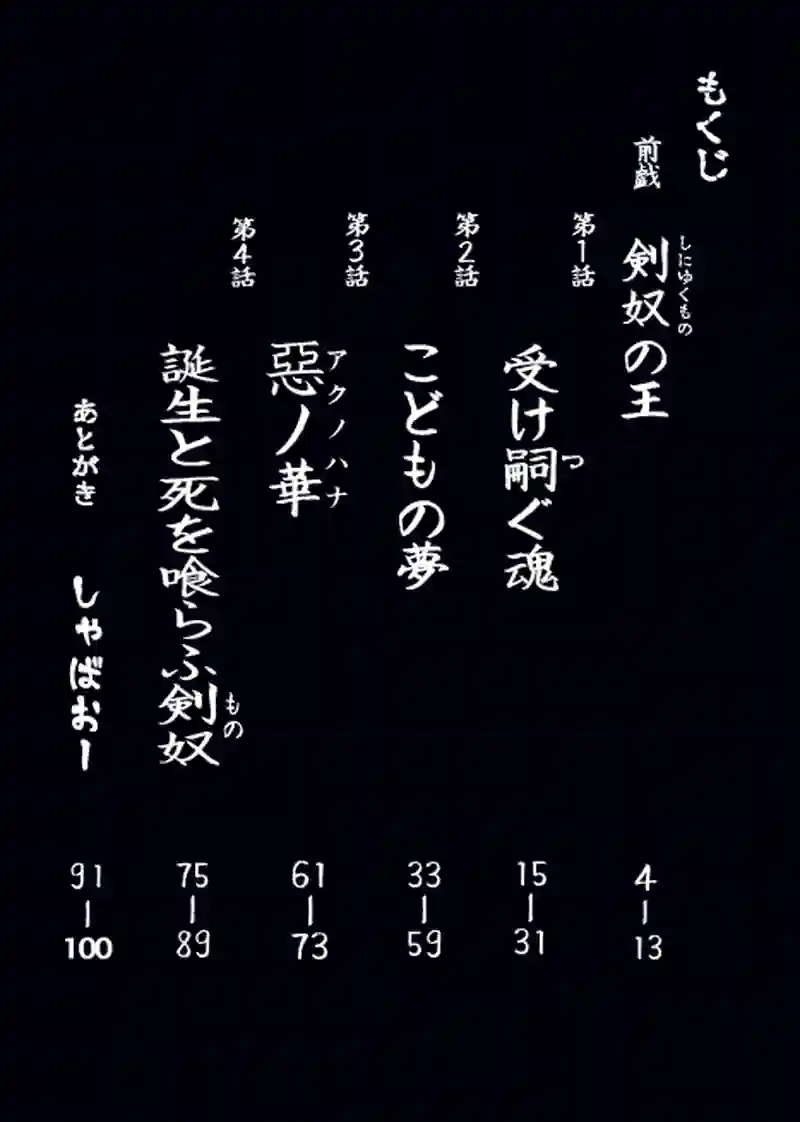 もくじ
前戯
剣奴の王
しにゆくもの
4-13
第1話
受け嗣ぐ魂
つ
15-31
第2話
こどもの夢
33-59
第3話
惡ノ華
アクノハナ
61-73
第4話
誕生と死を喰らふ剣奴
もの
75-89
あとがき
しゃばおー
91-100